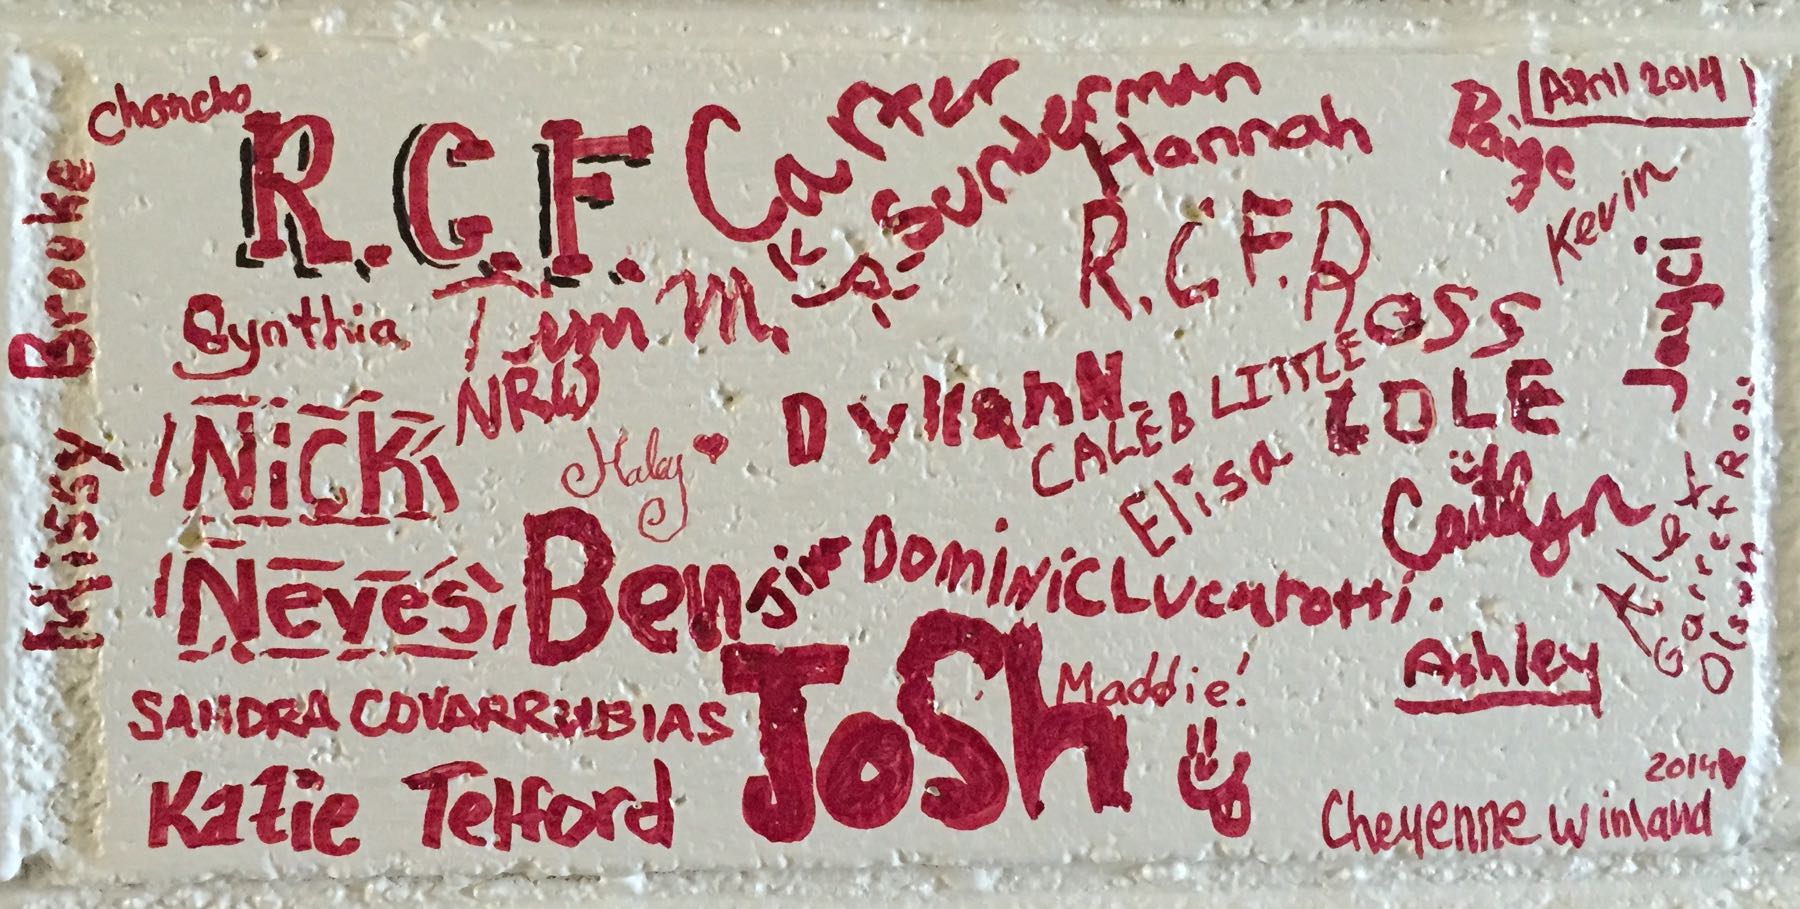 Choncho
R.C.F.
Carter
Sunderman
Hannah
Paige
April 2014
Kevin
Missy Brooke
Synthia
Tim M.
R.C.F.D
Ross
Jayci
Nick
NRW
Haley
CALEB LITTLE
COLE
Elisa
Caitlyn
Alex
Garrett Ross
Neves
Ben
Dominic Lucarotti.
Josh
Maddie!
Ashley
SANDRA COVARRUBIAS
Katie Telford
2014
Cheyenne Winland